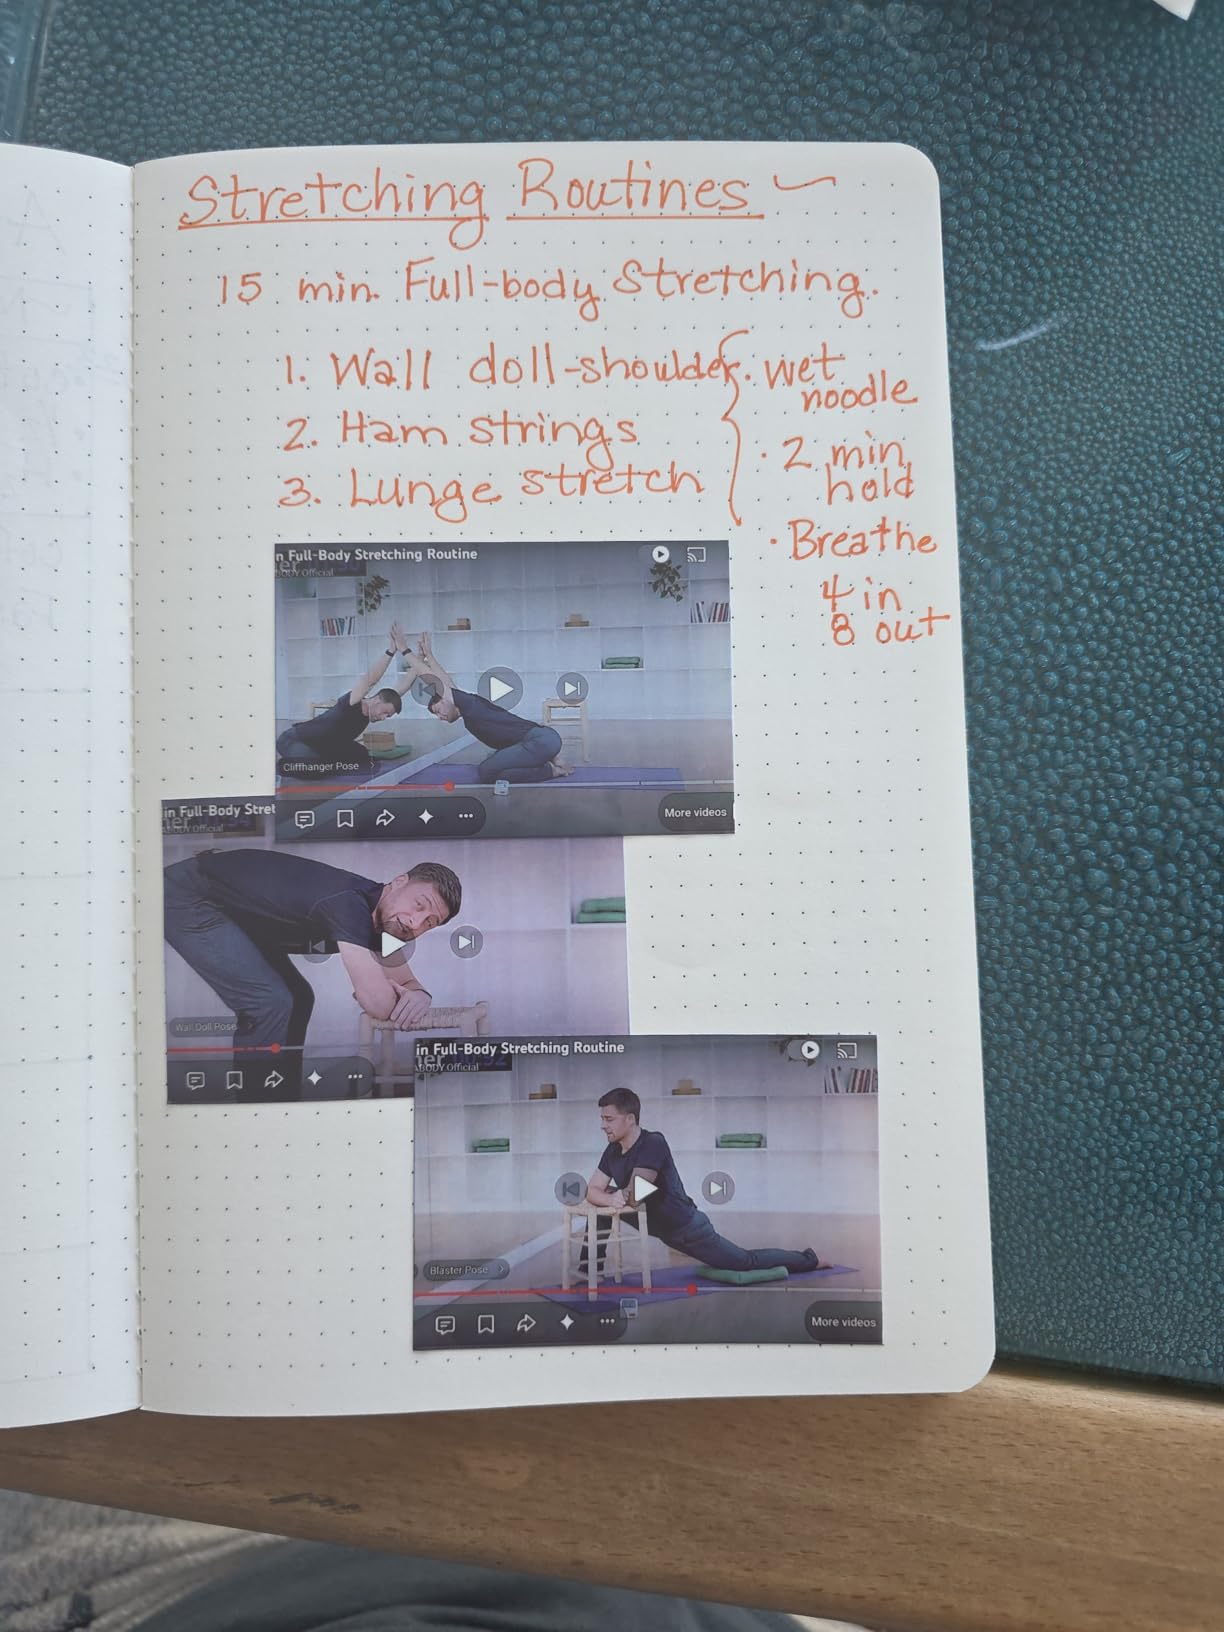 Stretching Routines
15 min. Full-body Stretching.
1. Wall doll-shoulder
2. Ham strings
3. Lunge stretch
· wet
noodle
· 2 min
hold
· Breathe
4 in
8 out
n Full-Body Stretching Routine
BODY Official
Cliffhanger Pose
More videos
in Full-Body Stret
BODY Official
Wall Doll Pose
in Full-Body Stretching Routine
ABODY Official
Blaster Pose
More videos